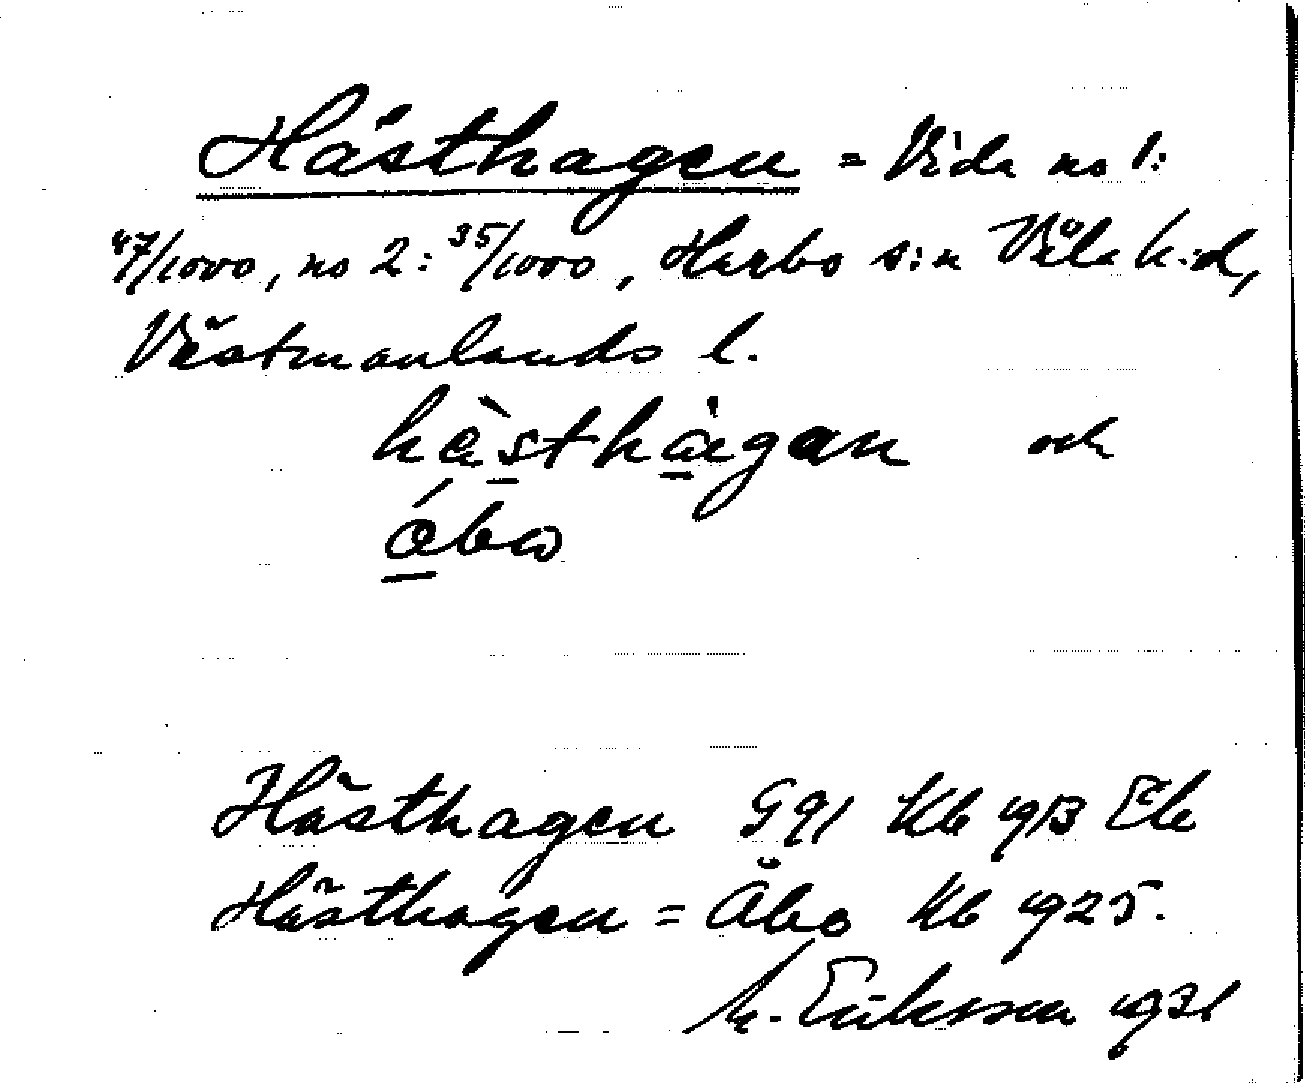 Hästhagen = Vida no 1:
47/1000, no 2: 35/1000, Harbo s:n Våla h:d,
Västmanlands l.
hästhagan och
åbo
Hästhagen G 91 Kb 1913 Ek
Hästhagen = Åbo Kb 1925.
M. Eriksson 1931